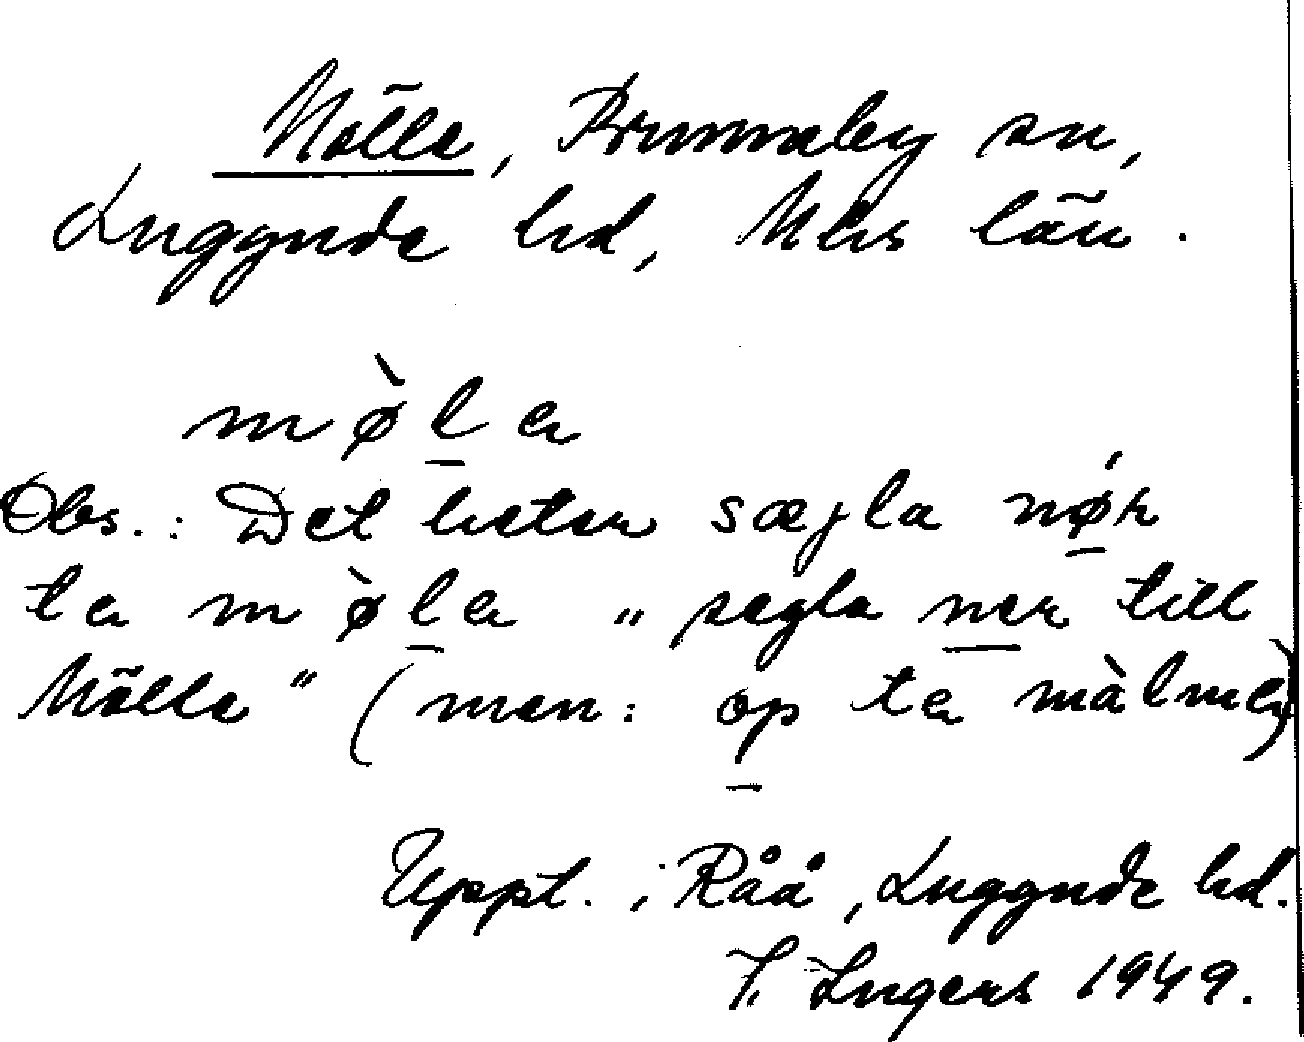 Mölle, Brunnby sn,
Luggude hd, Mhs län.
mø̀la
Obs.: Det heter sægla nǿr
ta mø̀la "segla ner till
Mölle" (men: op ta màlmø)
Uppt. i Råå, Luggude hd.
I. Ingers 1949.